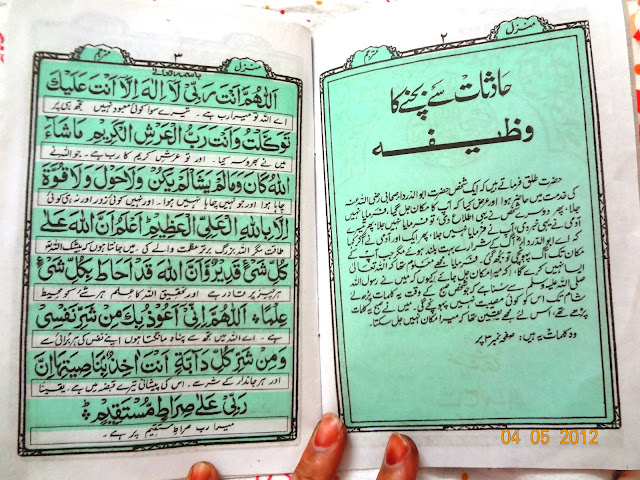 منزل
۲
مترجم
حادثات سے بچنے کا
وظیفہ
حضرت طلق فرماتے ہیں کہ ایک شخص حضرت ابوالدرداء صحابی رضی اللہ عنہ
کی خدمت میں حاضر ہوا اور عرض کیا کہ آپ کا مکان جل گیا، فرمایا نہیں
جلا، پھر دوسرے شخص نے یہی اطلاع دی تو فرمایا نہیں جلا، پھر تیسرے
آدمی نے یہی خبر دی، آپ نے فرمایا نہیں جلا، پھر ایک اور آدمی نے آکر کہا
کہ اے ابوالدرداء آگ کے شرارے بہت بلند ہوئے مگر جب آپ کے
مکان تک آگ پہونچی تو بجھ گئی، فرمایا مجھے معلوم تھا کہ اللہ تعالیٰ
ایسا نہیں کرے گا، کہ میرا مکان جل جائے کیوں کہ میں نے رسول اللہ
صلی اللہ علیہ وسلم سے سنا ہے کہ جو شخص صبح کے وقت یہ کلمات پڑھ لے
شام تک اس کو کوئی مصیبت نہیں پہونچے گی، میں نے صبح یہ کلمات
پڑھے تھے، اس لئے مجھے یقین تھا کہ میرا مکان نہیں جل سکتا۔
وہ کلمات یہ ہیں: صفحہ نمبر ۳ پر
منزل
۳
مترجم
باسمہ تعالیٰ
اَللّٰهُمَّ اَنْتَ رَبِّىْ لَا اِلٰهَ اِلَّا اَنْتَ عَلَيْكَ
اے اللہ تو میرا رب ہے۔ تیرے سوا کوئی معبود نہیں تجھ ہی پر
تَوَكَّلْتُ وَاَنْتَ رَبُّ الْعَرْشِ الْكَرِيْمِ مَا شَآءَ
میں نے بھروسہ کیا۔ اور تو عرش کریم کا رب ہے۔ جو اللہ نے
اللهُ كَانَ وَمَالَمْ يَشَأْ لَمْ يَكُنْ وَلَاحَوْلَ وَلَا قُوَّةَ
چاہا ہوا اور جو نہیں چاہا نہیں ہوا۔ اور نہیں کوئی زور اور نہ ہی کوئی
اِلَّا بِاللهِ الْعَلِىِّ الْعَظِيْمِ اَعْلَمُ اَنَّ اللهَ عَلٰى
طاقت مگر اللہ بزرگ برتر عظمت والے کی میں جانتا ہوں کہ بیشک اللہ تو
كُلِّ شَىْءٍ قَدِيْرٌ وَاَنَّ اللهَ قَدْ اَحَاطَ بِكُلِّ شَىْءٍ
ہر چیز پر قادر ہے۔ اور تحقیق اللہ کا علم ہر شئے کو محیط
عِلْمًا ، اَللّٰهُمَّ اِنِّىْ اَعُوْذُبِكَ مِنْ شَرِّ نَفْسِىْ
ہے۔ اے اللہ میں تجھ سے پناہ مانگتا ہوں اپنے نفس کی ہر برائی سے
وَمِنْ شَرِّ كُلِّ دَآبَّةٍ اَنْتَ اٰخِذٌ بِنَاصِيَتِهَا اِنَّ
اور ہر جاندار کے شر سے۔ اس کی پیشانی تیرے قبضہ میں ہے۔ یقیناً
رَبِّىْ عَلٰى صِرَاطٍ مُّسْتَقِيْمٍ
میرا رب صراط مستقیم پر ہے۔
04 05 2012